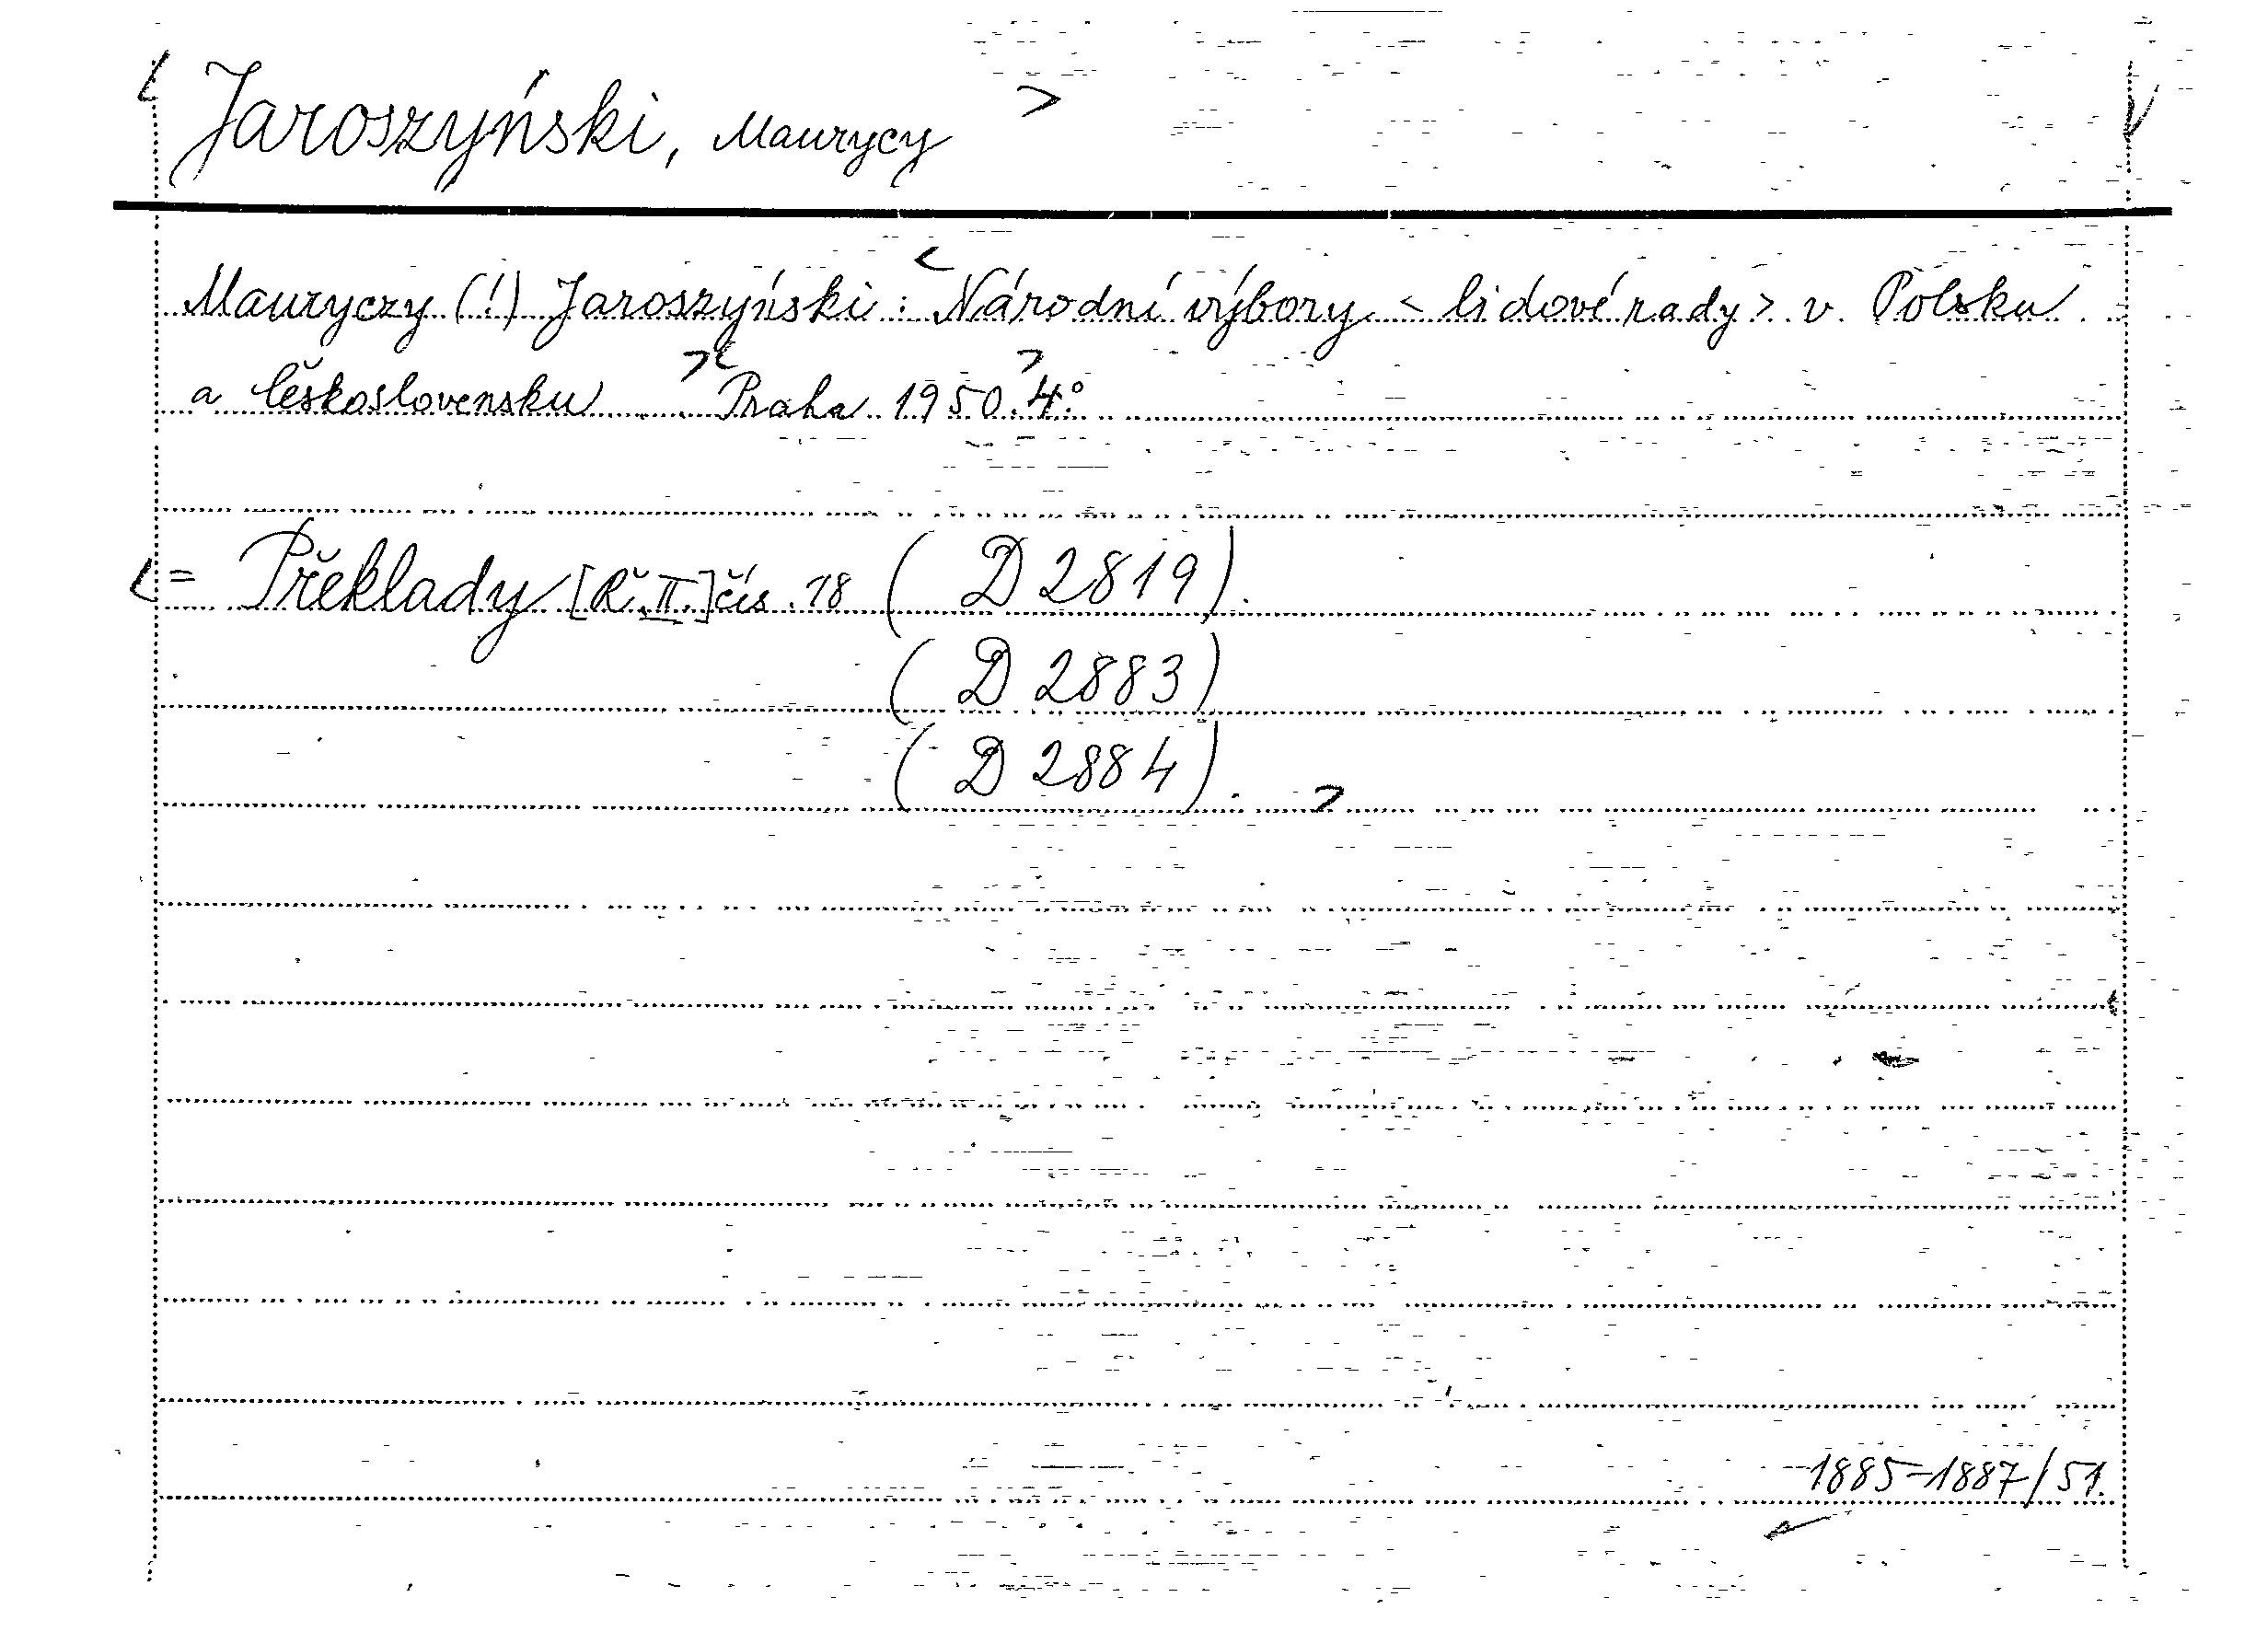 Jaroszyński, Maurycy
Mauryczy (!) Jaroszyński: Národní výbory < lidové rady > v Polsku
a Československu Praha 1950. 4°.
= Překlady [Ř. II.] čís. 18 (D 2819).
(D 2883)
(D 2884).
1885-1887/51.